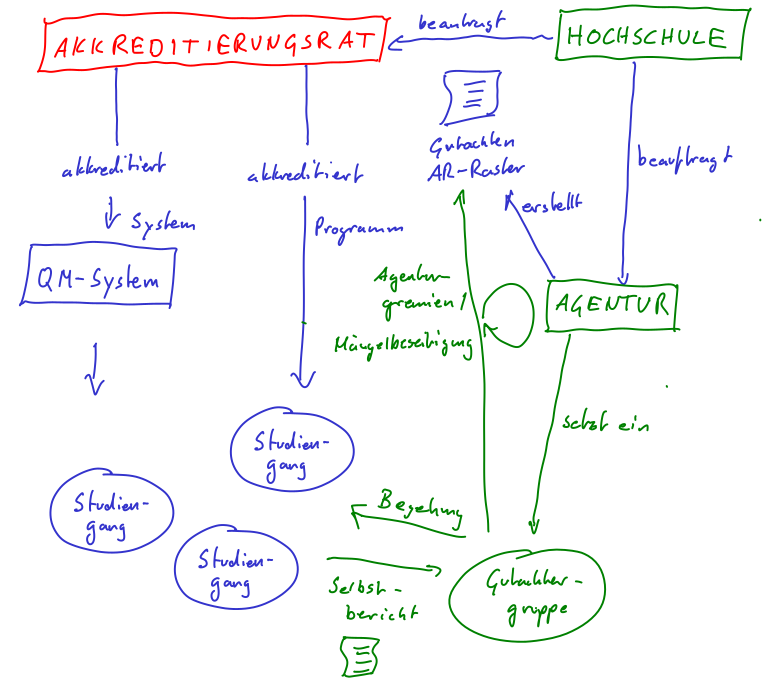 AKKREDITIERUNGSRAT
beauftragt
HOCHSCHULE
akkreditiert
System
QM-System
akkreditiert
Programm
Gutachten
AR-Raster
erstellt
beauftragt
AGENTUR
Agentur-
gremien /
Mängelbeseitigung
setzt ein
Studien-
gang
Studien-
gang
Studien-
gang
Begehung
Selbst-
bericht
Gutachter-
gruppe